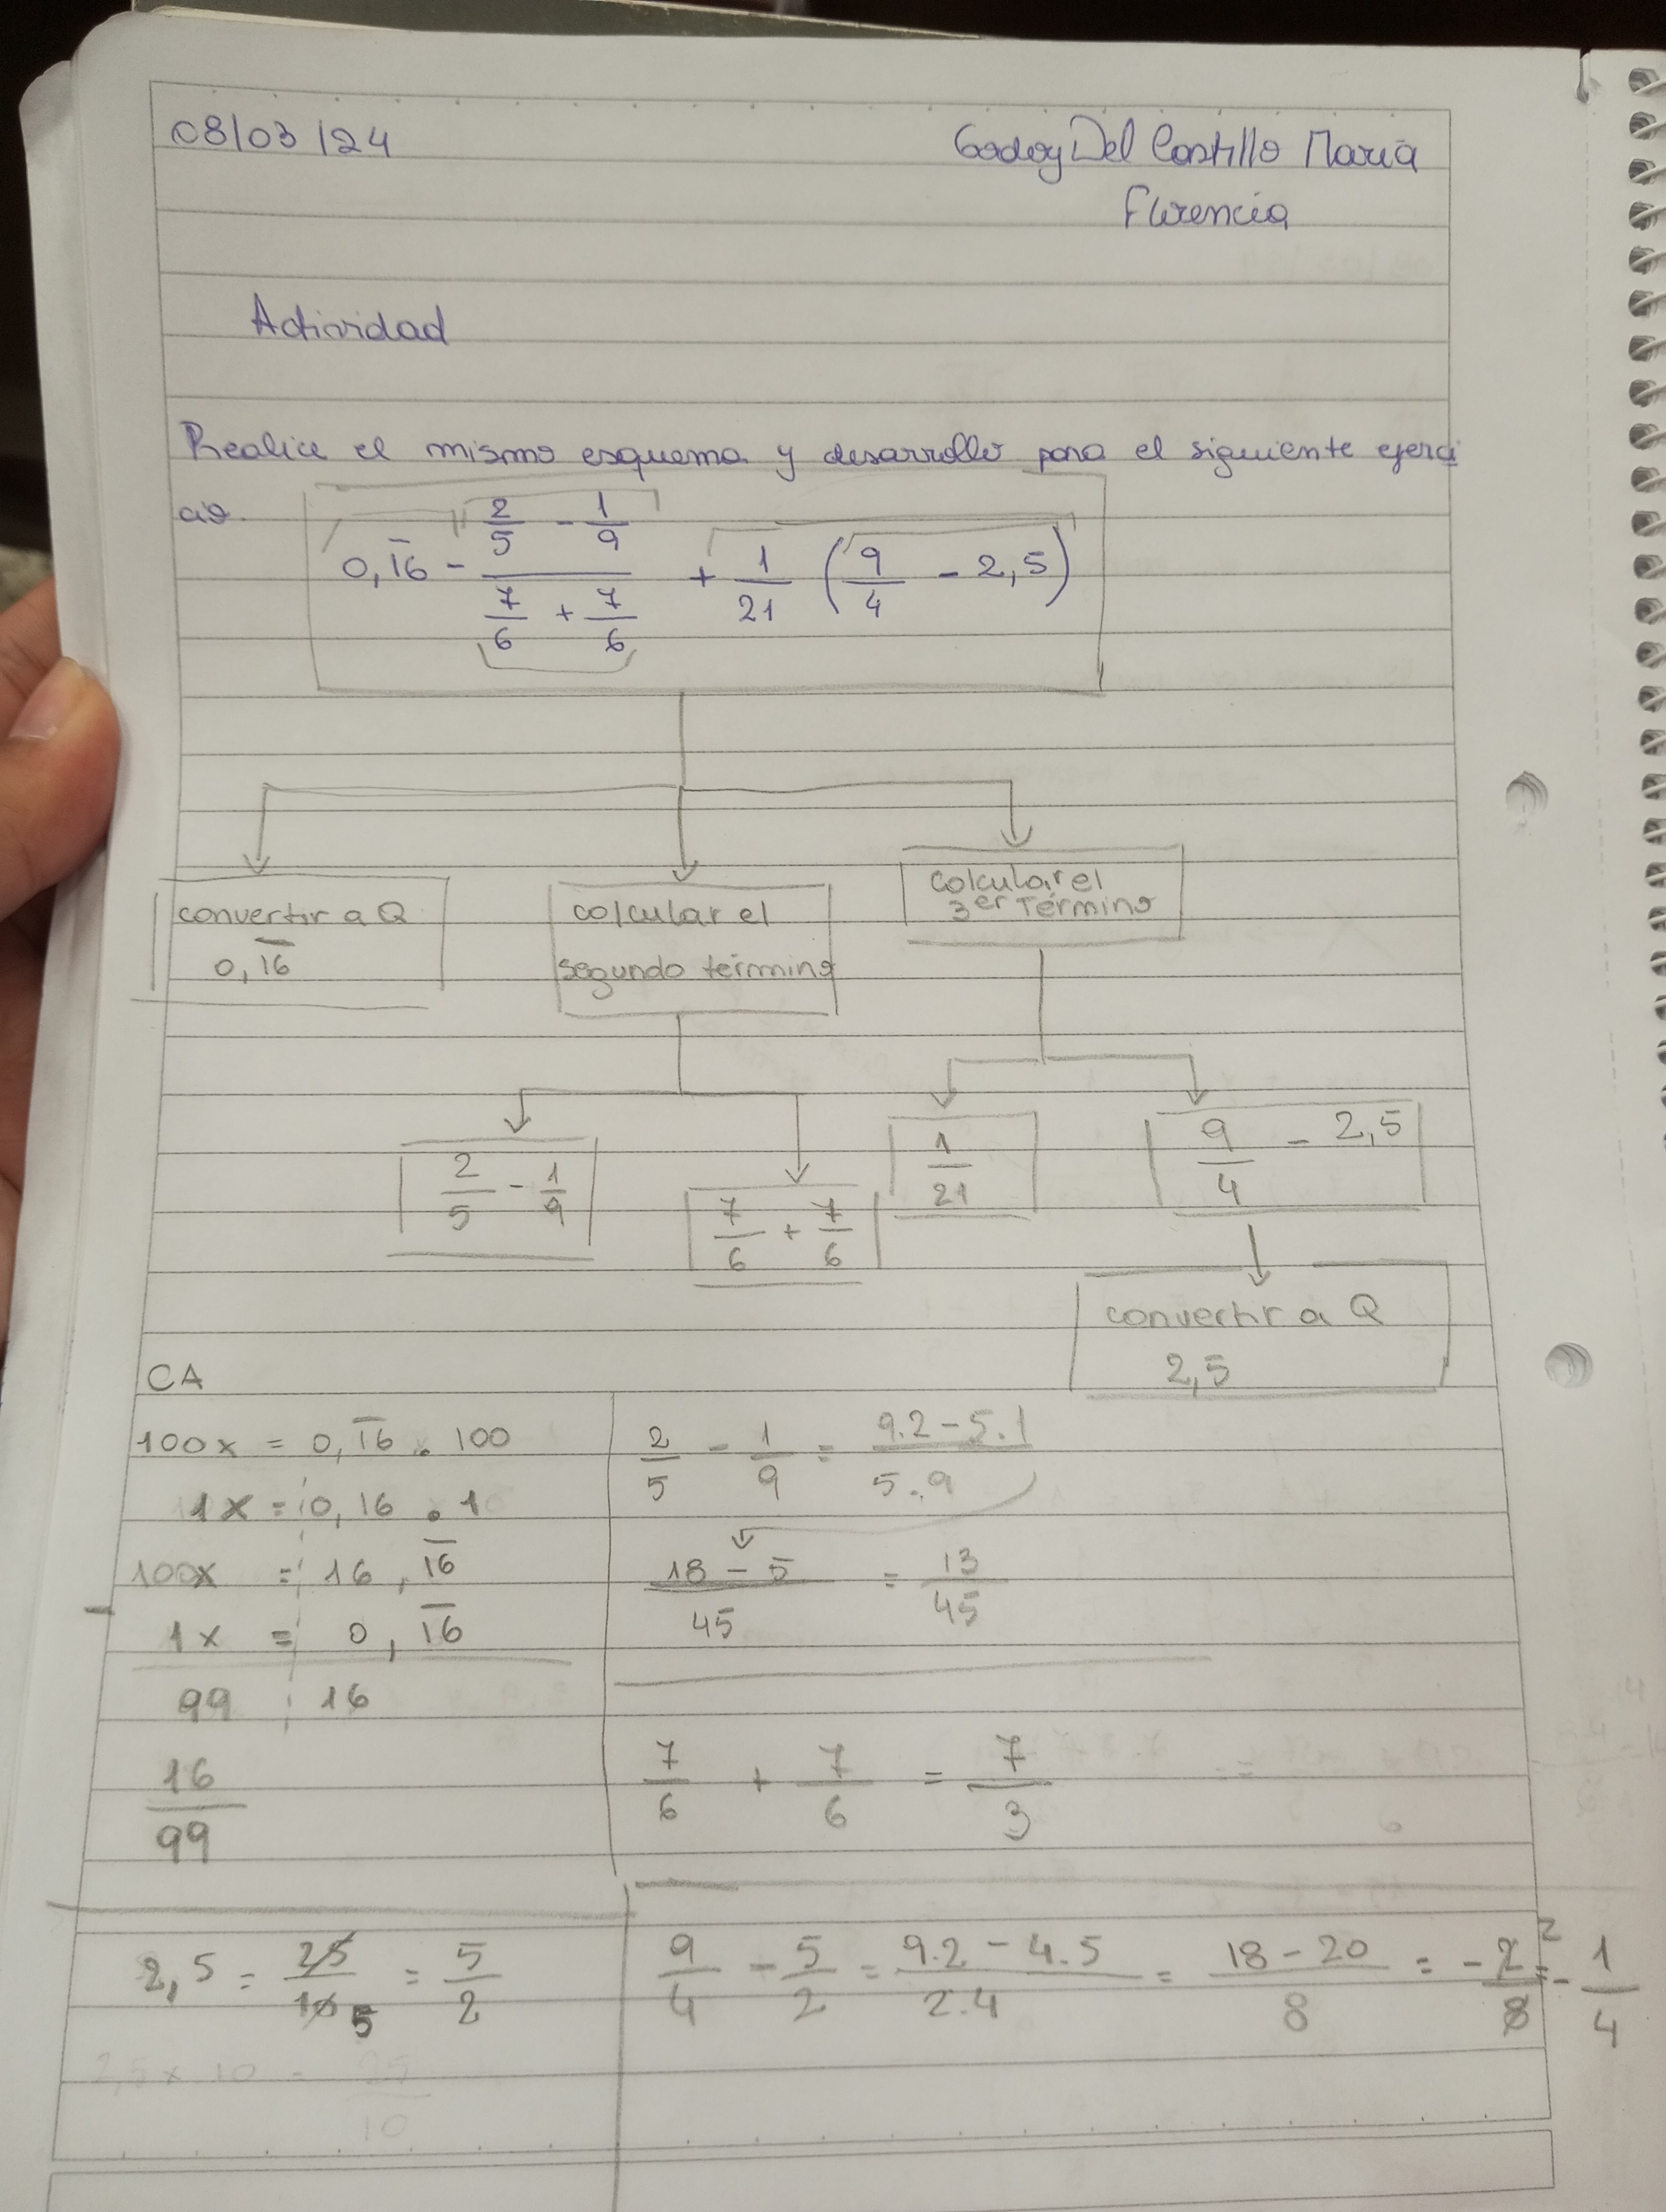 08/03/24
Godoy Del Castillo Maria
Florencia
Actividad
Realice el mismo esquema y desarrollo para el siguiente ejerci
cio.
0,1̅6̅ - (2/5 - 1/9)/(7/6 + 7/6) + 1/21 (9/4 - 2,5)
convertir a Q
0,1̅6̅
calcular el
segundo término
calcular el
3er Término
2/5 - 1/9
7/6 + 7/6
1/21
9/4 - 2,5
convertir a Q
2,5
CA
100x = 0,1̅6̅ . 100
1x = 0,16 . 1
100x = 16,1̅6̅
- 1x = 0,1̅6̅
99 16
16/99
2/5 - 1/9 = (9.2 - 5.1)/(5.9)
(18 - 5)/45 = 13/45
7/6 + 7/6 = 7/3
2,5 = 25/10 5 = 5/2
2,5 x 10 = 25/10
9/4 - 5/2 = (9.2 - 4.5)/(2.4) = (18 - 20)/8 = - 2/8 2 = - 1/4